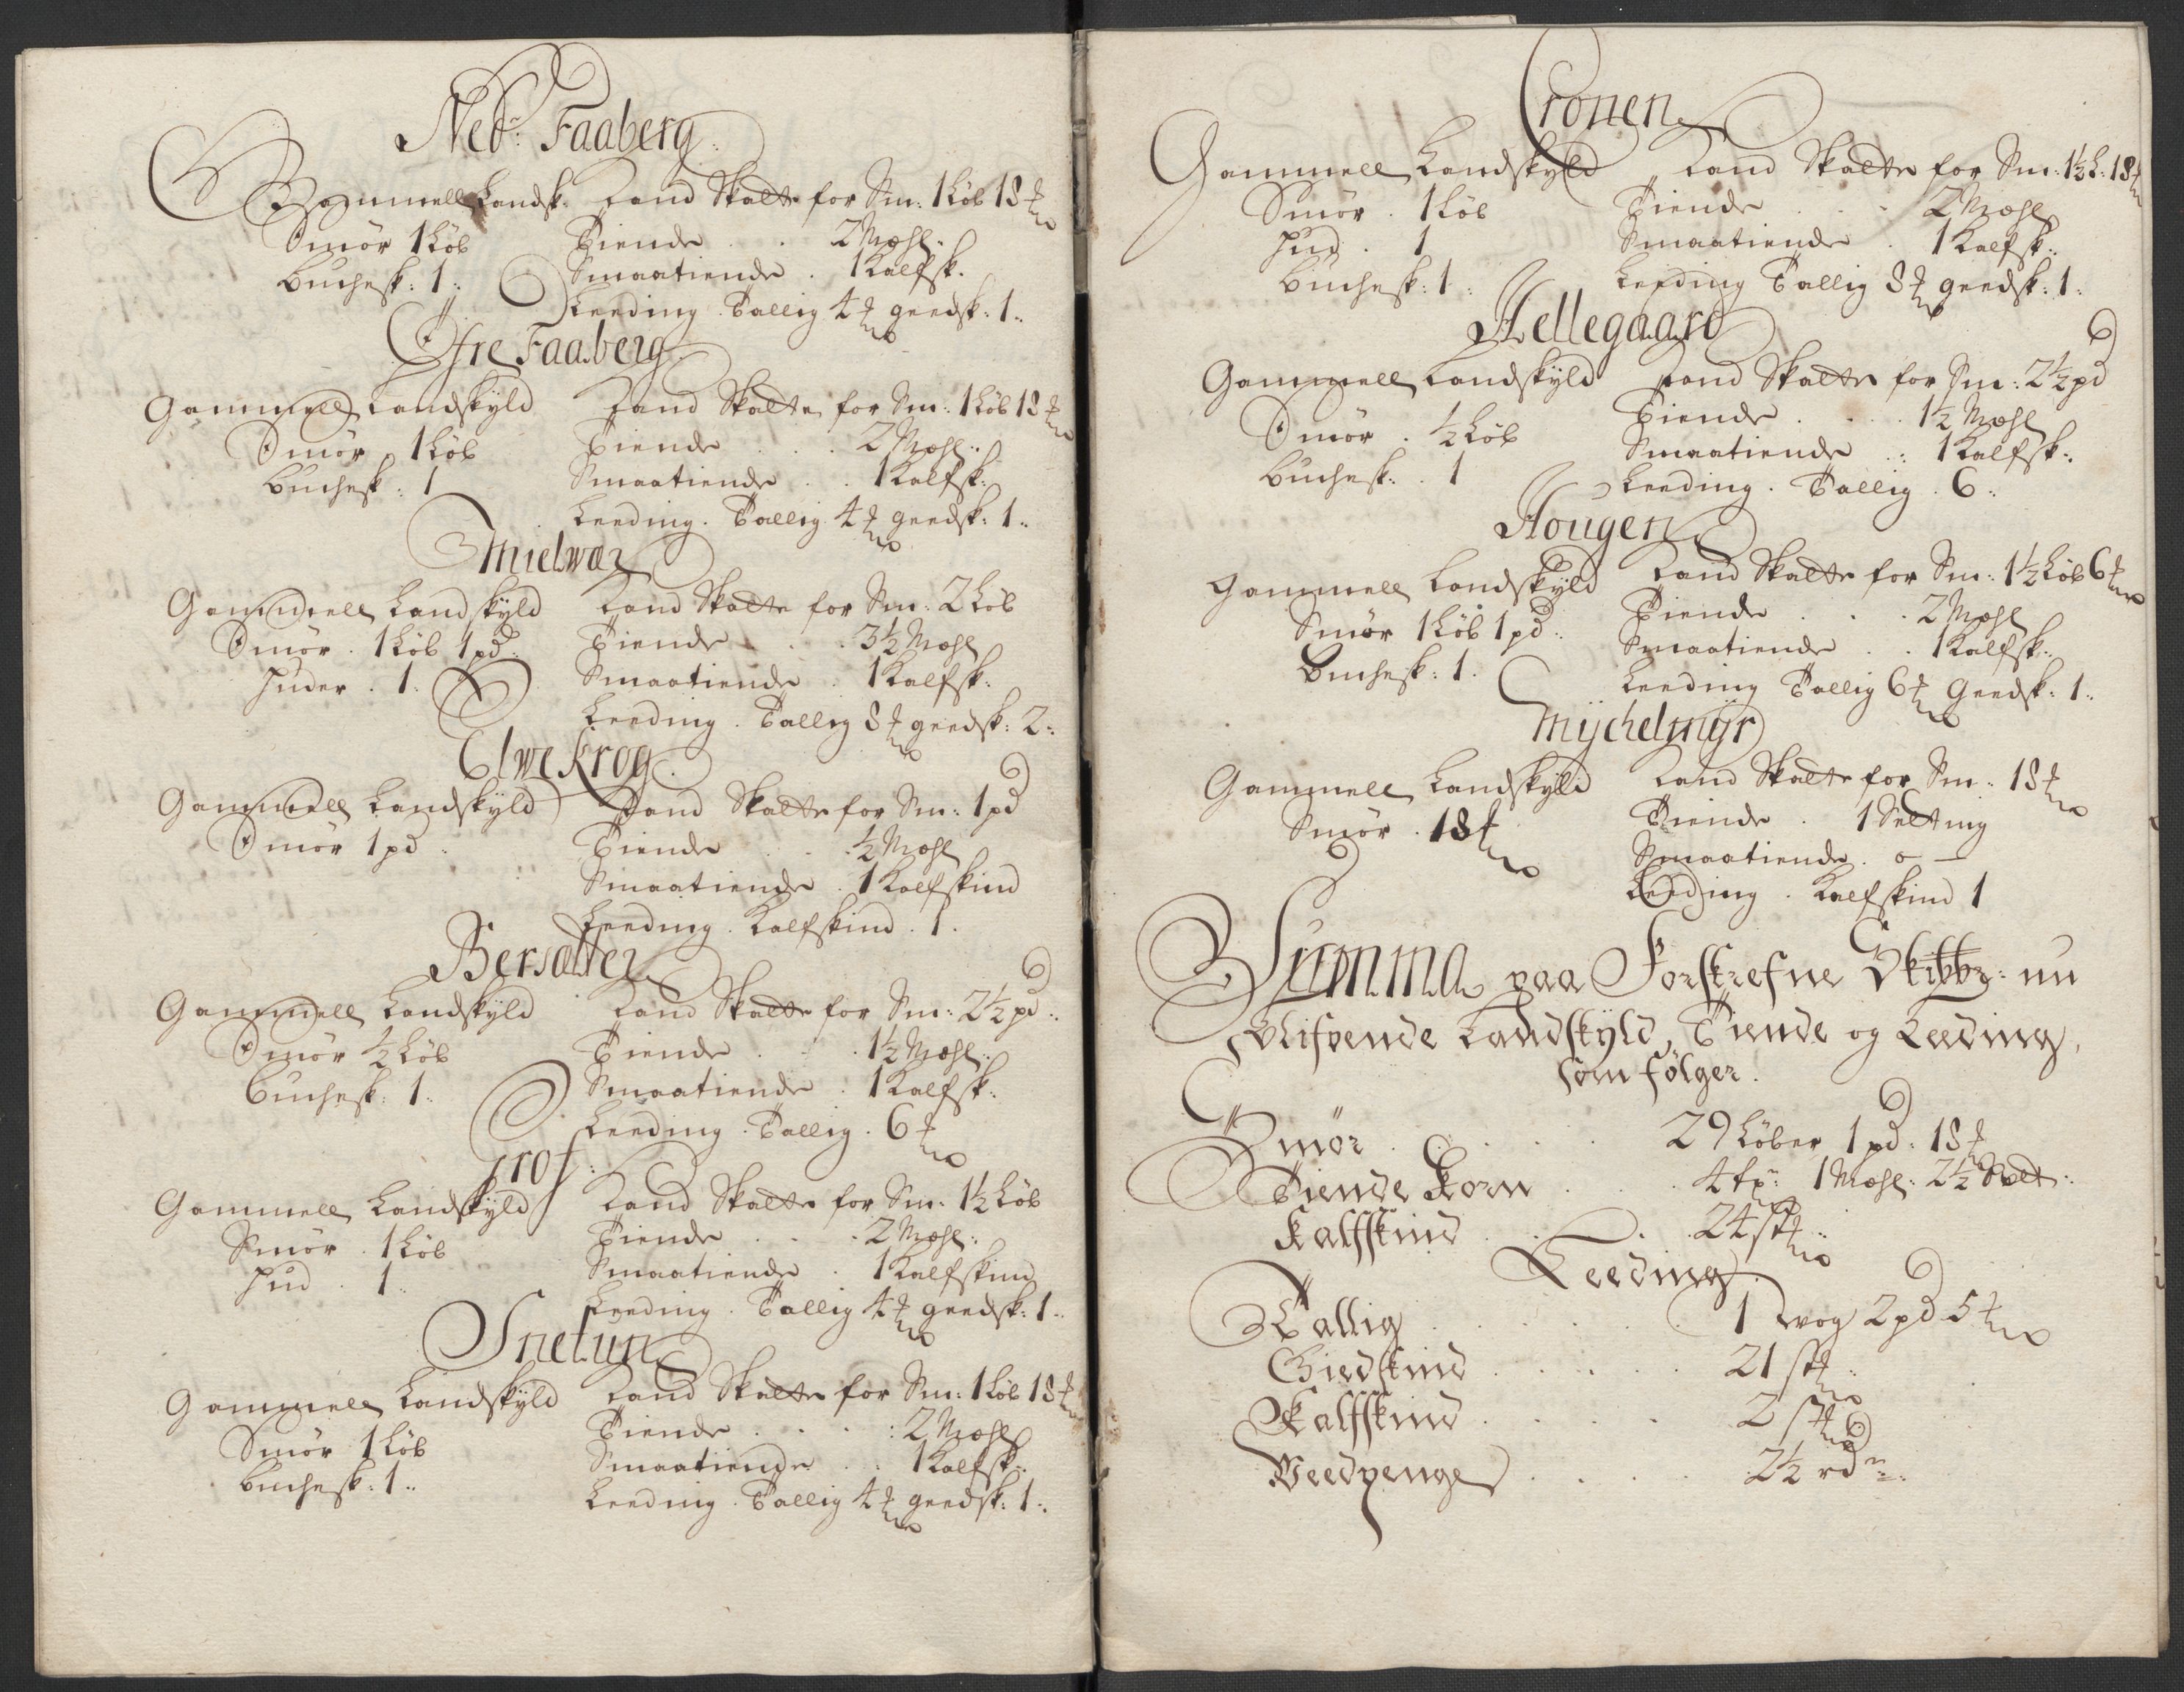 Nedr: Faaberg
Gammell Landsk: Land Skatte for Sm: 1 Løb 18 ℔
Smør 1 Løb Tiende . . 2 Mæhl:
Buchesk: 1: Smaatiende . 1 Kalfsk:
Leeding . Tallig 4 ℔ geedsk: 1:
Øfre Faaberg
Gammell Landskyld Land Skatte for Sm: 1 Løb 18 ℔
Smør 1 Løb Tiende . . . 2 Mæhl:
Buchesk: 1 Smaatiende . . 1 Kalfsk:
Leeding . Tallig 4 ℔ geedsk: 1:
Mielwær
Gammell Landskyld Land Skatte for Sm: 2 Løb
Smør . 1 Løb 1 pd: Tiende . . 3½ Mæhl
Huder . 1. Smaatiende . 1 Kalfsk:
Leeding . Tallig 8 ℔ geedsk: 2:
Elwe Krog
Gammell Landskyld Land Skatte for Sm: 1 pd
Smør 1 pd . Tiende . . . ½ Mæhl
Smaatiende . 1 Kalfskind
Leeding . Kalfskind . 1.
Bersætter
Gammell Landskyld Land Skatte for Sm: 2½ pd:
Smør ½ Løb Tiende . . . 1½ Mæhl:
Buchesk: 1: Smaatiende . 1 Kalfsk:
Leeding . Tallig . 6 ℔
Grof
Gammell Landskyld Land Skatte for Sm: 1½ Løb
Smør . 1 Løb Tiende . . . 2 Mæhl:
Hud . 1. Smaatiende . 1 Kalfskind
Leeding . Tallig 4 ℔ geedsk: 1:
Snetun
Gammell Landskyld Land Skatte for Sm: 1 Løb 18 ℔
Smør 1 Løb Tiende . . . : 2 Mæhl
Buchesk: 1: Smaatiende . . 1 Kalfsk:
Leeding . Tallig 4 ℔ geedsk: 1:
Cronen
Gammell Landskyld Land Skatte for Sm: 1½ L: 18 ℔
Smør . 1 Løb Tiende . . . 2 Mæhl
Hud . 1 Smaatiende . 1 Kalfsk:
Buchesk: 1: Leeding Tallig 8 ℔ geedsk: 1:
Hellegaard
Gammell Landskyld Land Skatte for Sm: 2½ pd
Smør . ½ Løb Tiende . . . 1½ Mæhl
Buchesk: . 1 Smaatiende . : 1 Kalfsk:
Leeding . Tallig . 6:
Hougen
Gammell Landskyld Land Skatte for Sm: 1½ Løb 6 ℔
Smør 1 Løb 1 pd: Tiende . . . 2 Mæhl
Buchesk: 1. Smaatiende . . 1 Kalfsk:
Leeding Tallig 6 ℔ Geedsk: 1:
Mychelmyr
Gammell Landskyld Land Skatte for Sm: 18 ℔
Smør . 18 ℔ Tiende . 1 Setting
Smaatiende . o —
Leeding . Kalfskind 1
Summa paa Forskrefne Skibbr: nu
Landskyld, Tiende og Leeding,
som følger.
Smør . . . . . 29 Løber 1 pd: 18 ℔
Tiende Korn . . . 4 tr: 1 Mæhl: 2½ Sett:
Kalfskind . . . 24 st:
Leeding
Tallig . . . . . 1 wog 2 pd 5 ℔
Giedskind . . . . . 21 st:
Kalfskind . . . . 2 st:
Weedpenge . . . . 2½ rdr: